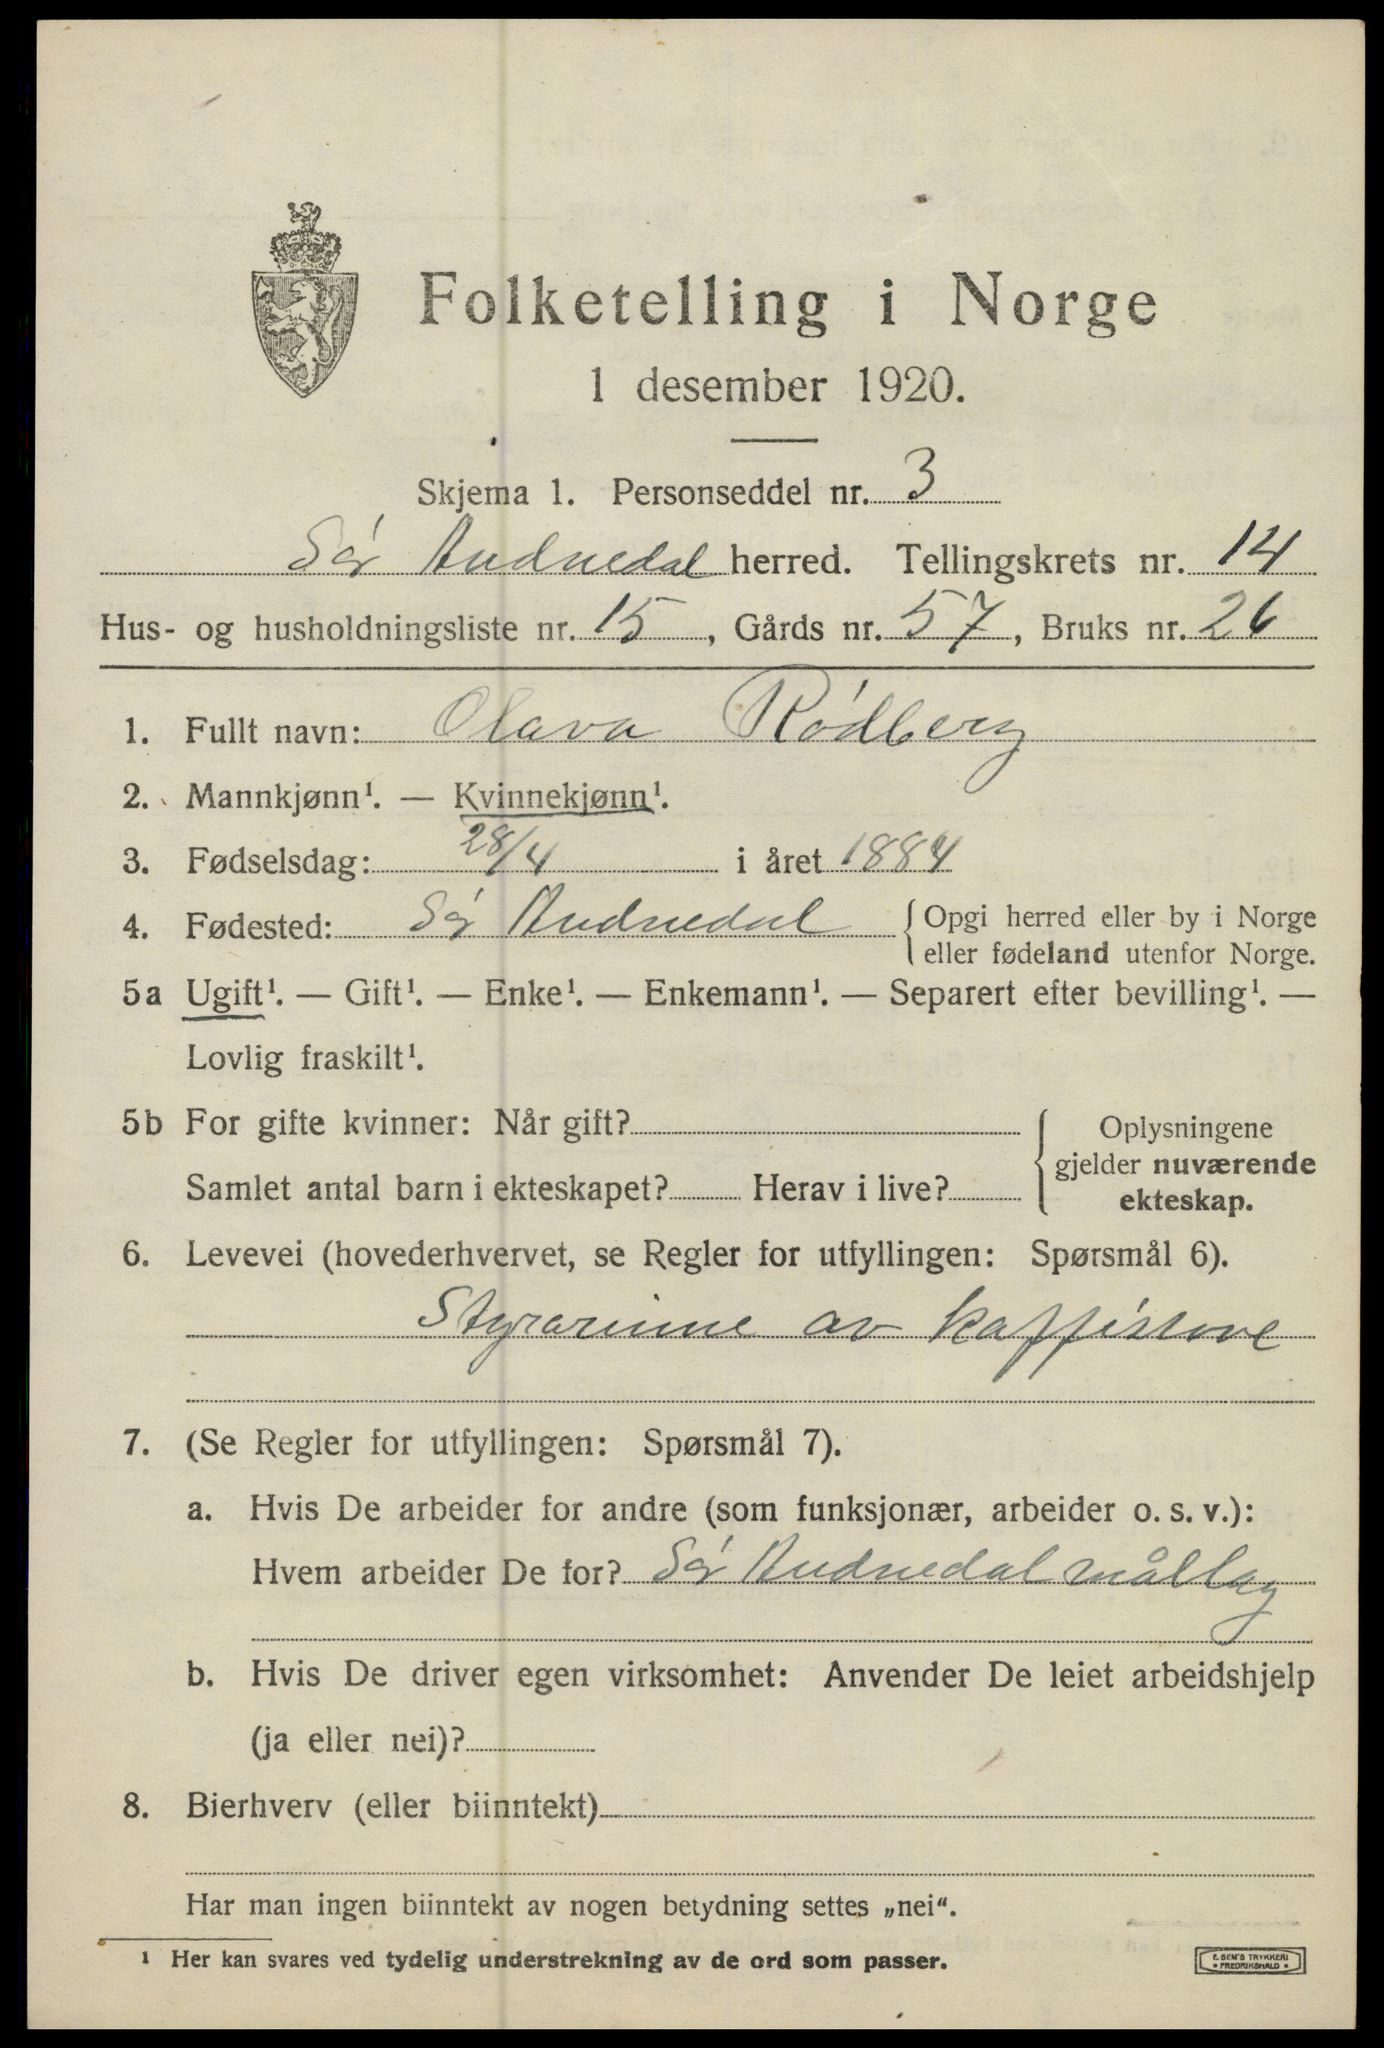 Folketelling i Norge
1 desember 1920.
Skjema 1. Personseddel nr. 3
Sør Audnedal herred. Tellingskrets nr. 14
Hus- og husholdningsliste nr. 15, Gårds nr. 57, Bruks nr. 26
1. Fullt navn: Olava Rødberg
2. Mannkjønn¹. — Kvinnekjønn¹.
3. Fødselsdag: 28/4 i året 1884
4. Fødested: Sør Audnedal { Opgi herred eller by i Norge
eller fødeland utenfor Norge.
5a Ugift¹. — Gift¹. — Enke¹. — Enkemann¹. — Separert efter bevilling¹. —
Lovlig fraskilt¹.
5b For gifte kvinner: Når gift? { Oplysningene
gjelder nuværende
Samlet antal barn i ekteskapet? Herav i live? ekteskap.
6. Levevei (hovederhvervet, se Regler for utfyllingen: Spørsmål 6).
Styrarinne av kaffistove
7. (Se Regler for utfyllingen: Spørsmål 7).
a. Hvis De arbeider for andre (som funksjonær, arbeider o. s. v.):
Hvem arbeider De for? Sør Audnedal mållag
b. Hvis De driver egen virksomhet: Anvender De leiet arbeidshjelp
(ja eller nei)?
8. Bierhverv (eller biinntekt)
Har man ingen biinntekt av nogen betydning settes „nei“.
¹ Her kan svares ved tydelig understrekning av de ord som passer.
E. SEM'S TRYKKERI
• FREDRIKSHALD •